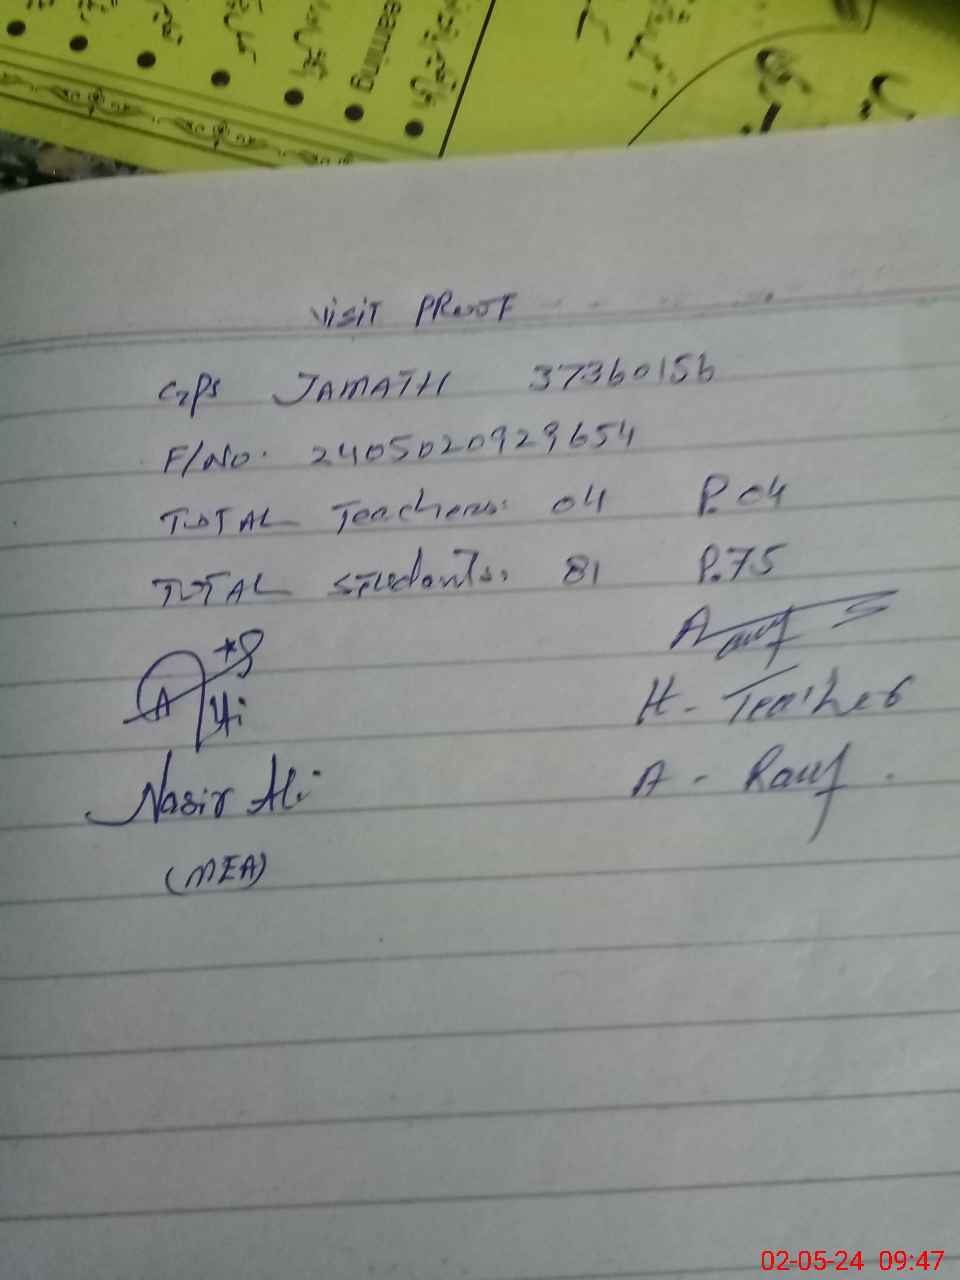 earning
Visit PRooF
GPS JAMATH 37360156
F/No. 2405020929654
TOTAL Teachers: 04 P.04
TOTAL Students: 81 P.75
A Rauf
H - Teacher
Nasir Ali
A - Rauf.
(MEA)
02-05-24 09:47